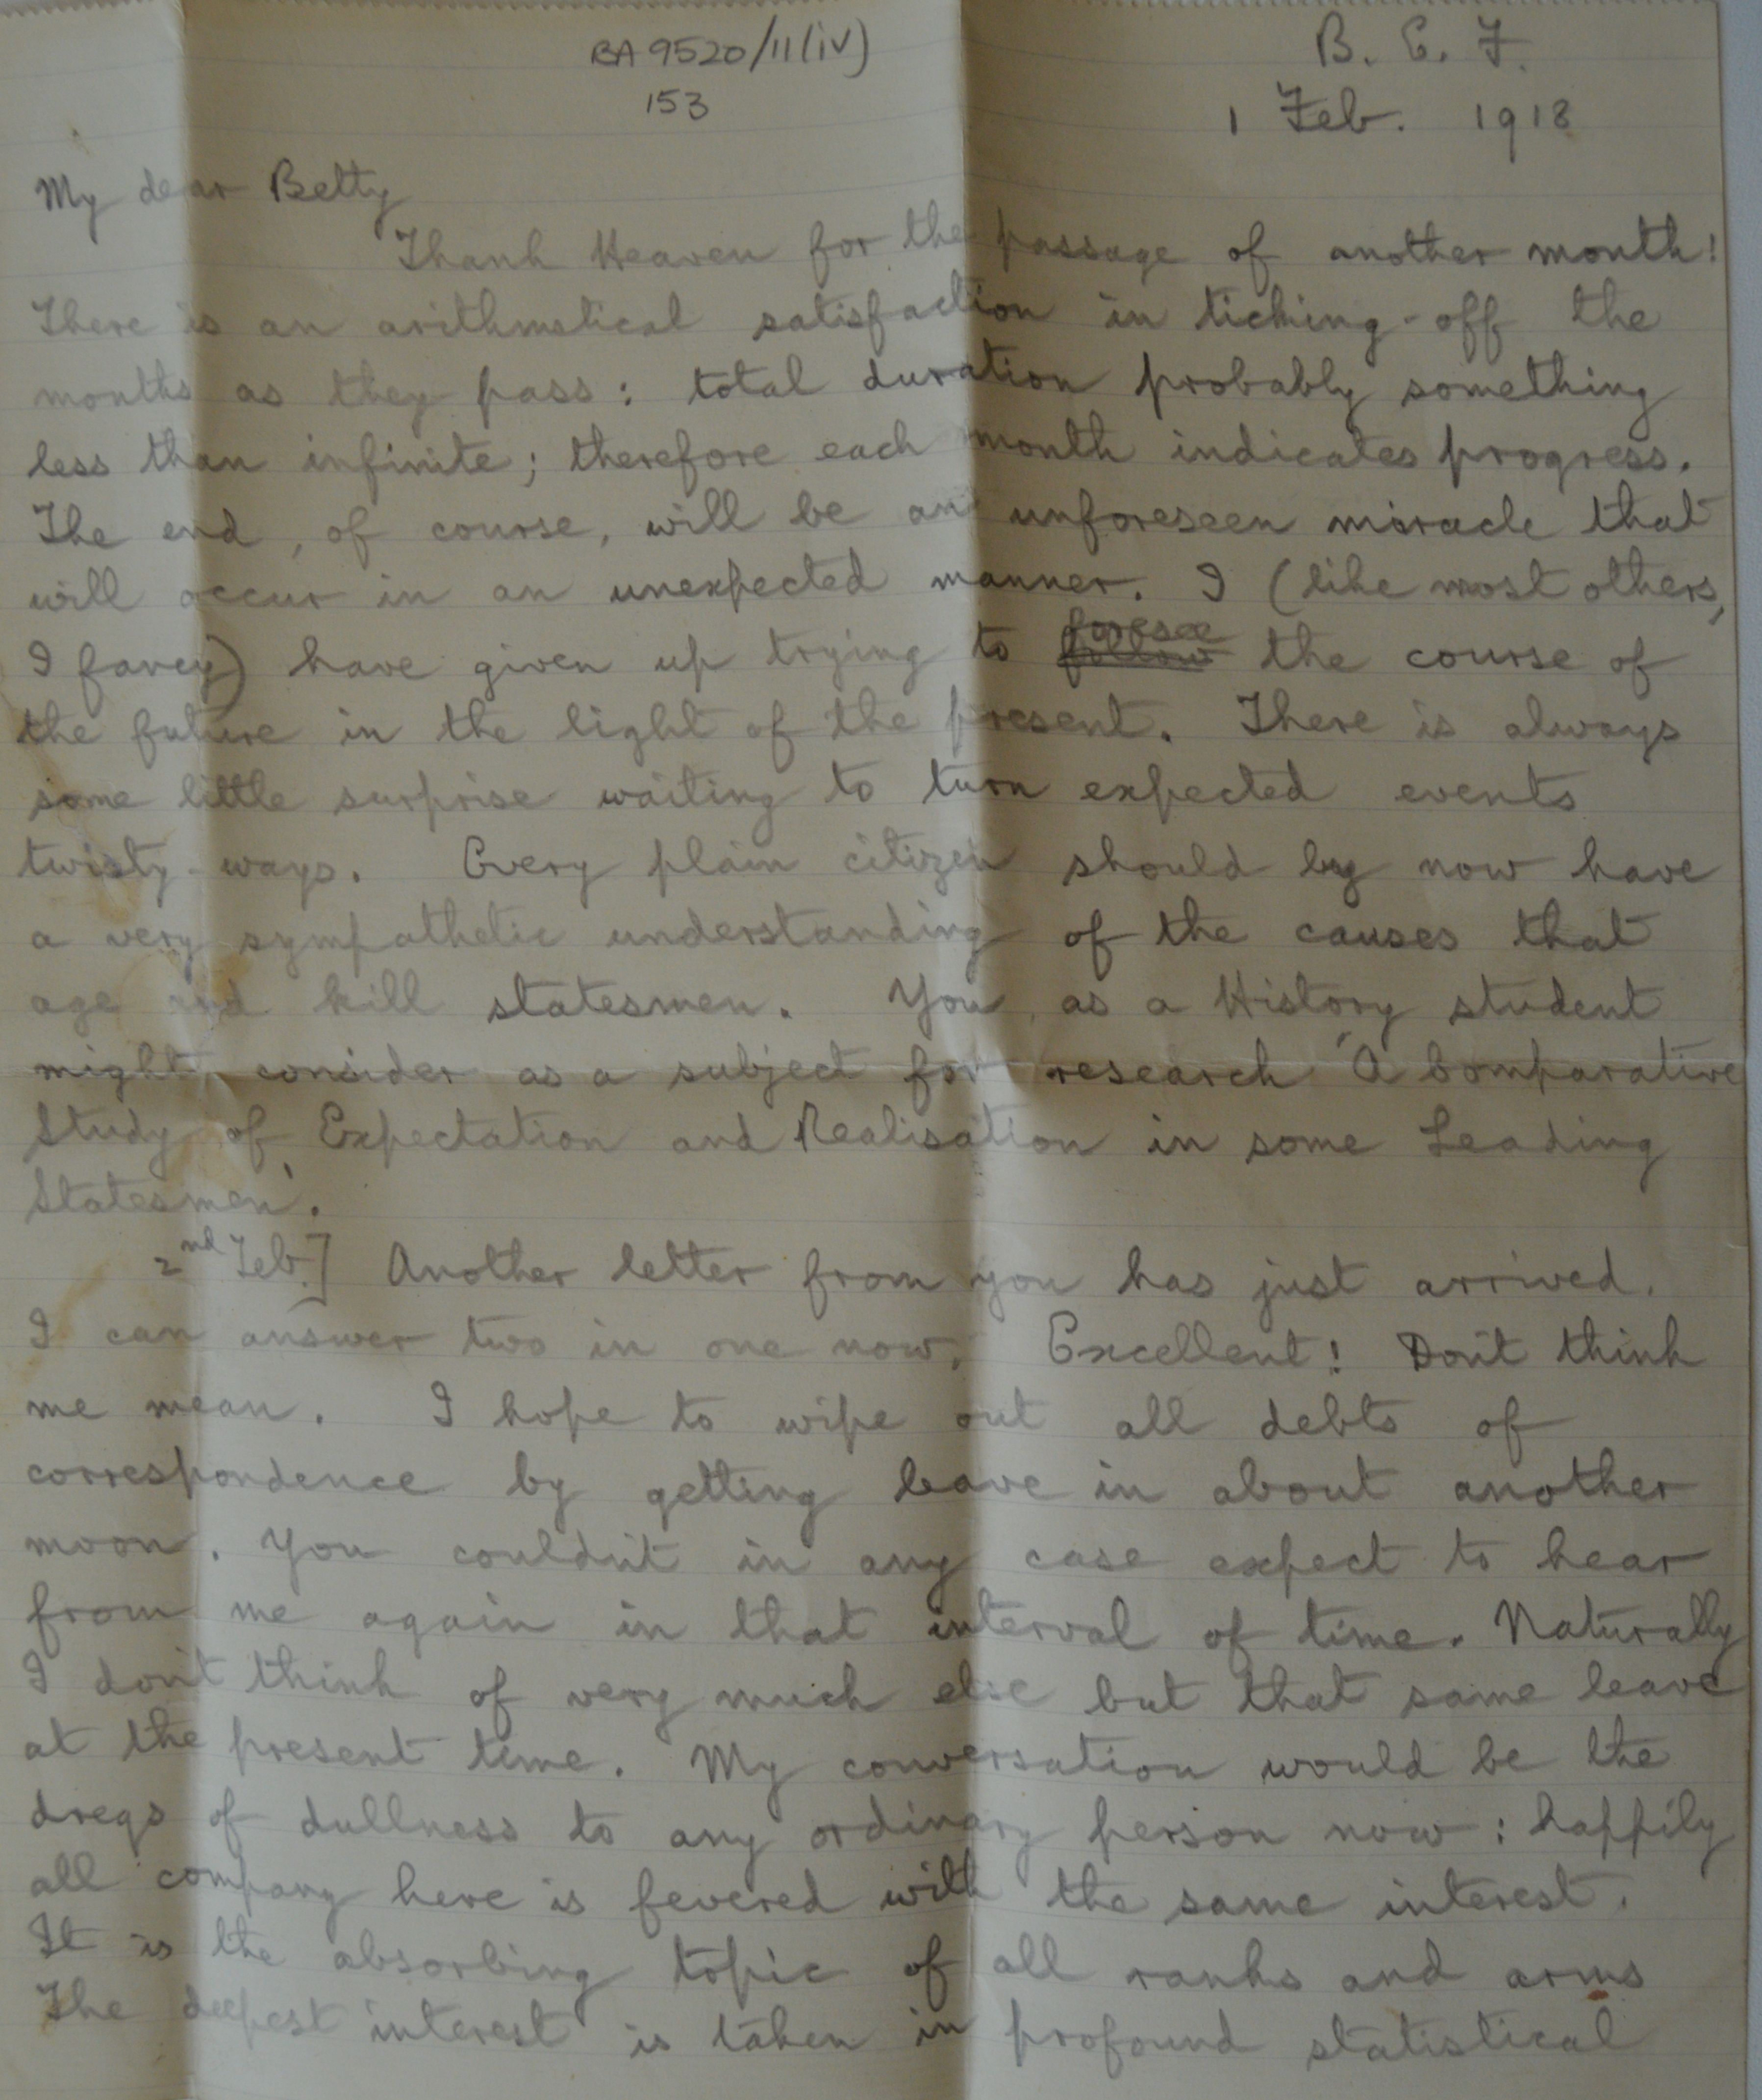 BA 9520/11(iv)
153
B. E. F.
1 Feb. 1918
My dear Betty
Thank Heaven for the passage of another month!
There is an arithmetical satisfaction in ticking-off the
months as they pass: total duration probably something
less than infinite; therefore each month indicates progress.
The end, of course, will be an unforeseen miracle that
will occur in an unexpected manner. I (like most others,
I fancy) have given up trying to foresee follow the course of
the future in the light of the present. There is always
some little surprise waiting to turn expected events
twisty-ways. Every plain citizen should by now have
a very sympathetic understanding of the causes that
age and kill statesmen. You, as a History student
might consider as a subject for research 'A Comparative
Study of Expectation and Realisation in some Leading
Statesmen'.
2nd Feb.] Another letter from you has just arrived.
I can answer two in one now. Excellent! Don't think
me mean. I hope to wipe out all debts of
correspondence by getting leave in about another
moon. You couldn't in any case expect to hear
from me again in that interval of time. Naturally
I don't think of very much else but that same leave
at the present time. My conversation would be the
dregs of dullness to any ordinary person now: happily
all company here is fevered with the same interest.
It is the absorbing topic of all ranks and arms
The deepest interest is taken in profound statistical